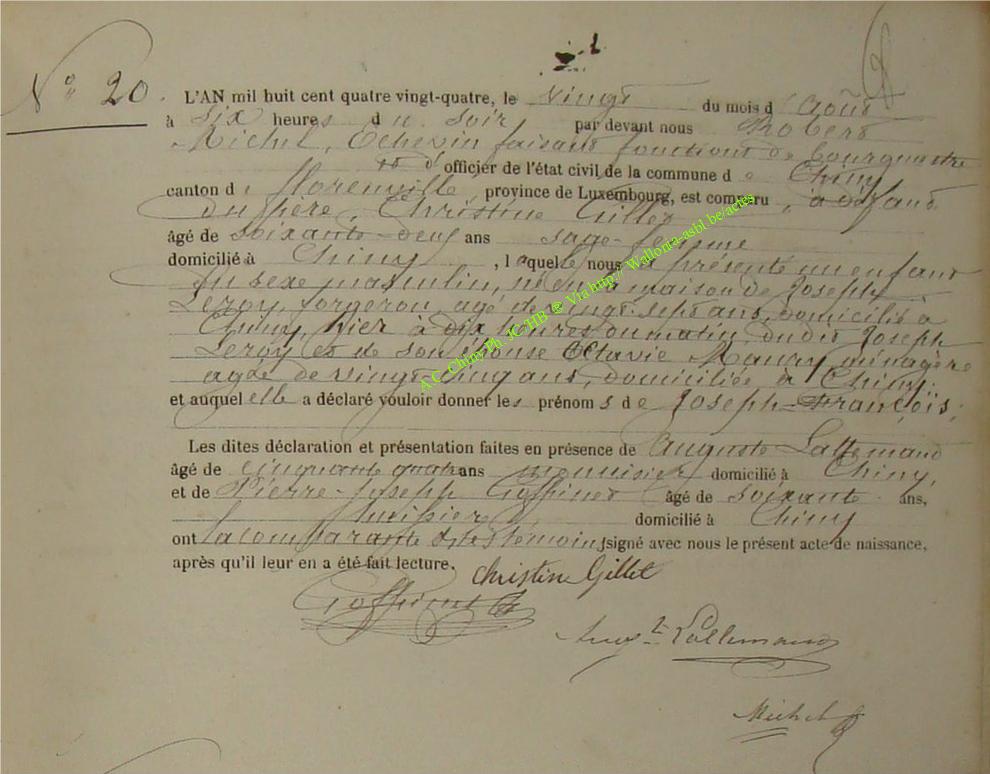 N° 20.
L'AN mil huit cent quatre vingt-quatre, le vingt du mois d'Août
à six heures du soir par devant nous Robert
Michel, Echevin faisant fonctions de bourgmestre
d'officier de l'état civil de la commune de Chiny
canton de Florenville, province de Luxembourg, est comparu, à défaut
du père, Christine Gillet
âgé de soixante-deux ans sage-femme
domicilié à Chiny, laquelle nous a présenté un enfant
du sexe masculin, né en la maison de Joseph
Leroy, forgeron, agé de vingt-sept ans, domicilié à
Chiny, hier à dix heures du matin, dudit Joseph
Leroy et de son épouse Octavie Maury ménagère
agée de vingt-cinq ans, domiciliée à Chiny;
et auquel elle a déclaré vouloir donner les prénoms de Joseph-François;
Les dites déclaration et présentation faites en présence de Auguste Lallemand
âgé de cinquante quatre ans menuisier domicilié à Chiny,
et de Pierre-Joseph Goffinet âgé de soixante ans,
huissier domicilié à Chiny
ont la comparante et les témoins signé avec nous le présent acte de naissance,
après qu'il leur en a été fait lecture.
Christine Gillet
Goffinet
Aug.te Lallemand
Michel
A.C. Chiny Ph. JC HB @ Via http// Wallonia-asbl.be/actes